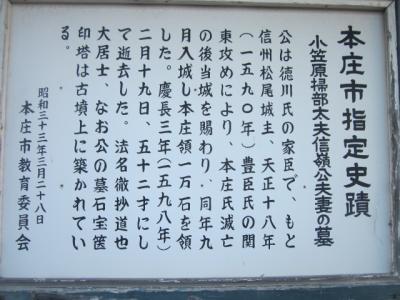 本庄市指定史蹟
小笠原掃部太夫信嶺公夫妻の墓
公は徳川氏の家臣で、もと
信州松尾城主、天正十八年
(一五九〇年)豊臣氏の関
東攻めにより、本庄氏滅亡
の後当城を賜わり、同年九
月入城し本庄領一万石を領
した。慶長三年(一五九八年)
二月十九日、五十二才にし
て逝去した。法名徹抄道也
大居士、なお公の墓石宝篋
印塔は古墳上に築かれてい
る。
昭和三十三年三月二十八日
本庄市教育委員会